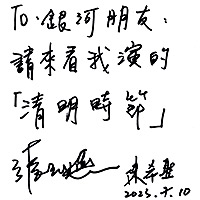 To:銀河朋友:
請來看我演的
「清明時節」
2023.7.10